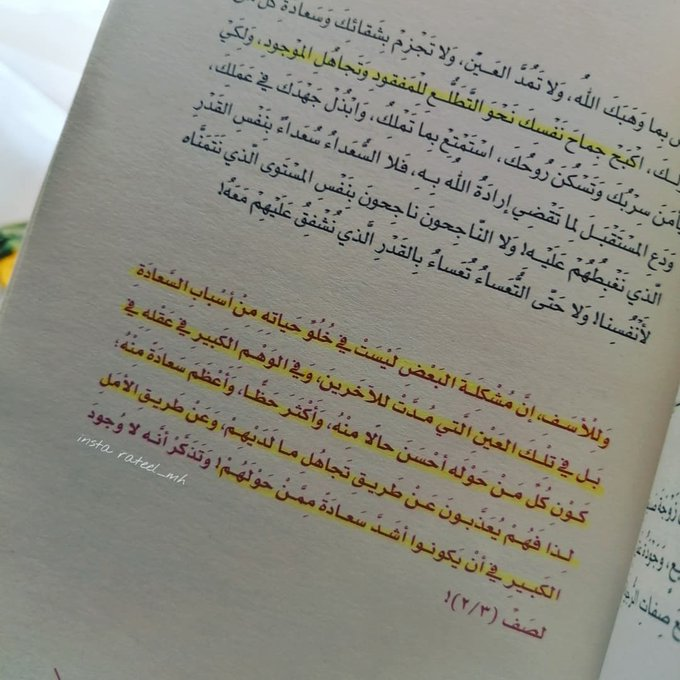 بما وَهَبَكَ اللهُ، وَلا تَمُدَّ العَـيْنَ، وَلا تَجْزِمْ بِشَقائكَ وَسَعادة كُلّ
اكْبَحْ جماحَ نَفْسِكَ نَحْوَ التَّطَلُّـعِ لِلْمَفْقودِ وَتَجاهُل المَوْجود، وَلكَيْ
يأمَنَ سِرْبُكَ وَتَسْكُنَ رُوحُك، اسْتَمْتِعْ بِما تَمْلكُ، وَابْذُلْ جَهْدَكَ في عَمَلكَ،
وَدَعِ المسْتَقْبَـلَ لما تَقْضي إرادَةُ الله بِـهِ، فَلا السُّعَداءُ سُعَداءٌ بِنَفْس القَدْرِ
الَّذي نَغْبِطُهُمْ عَلَيْـه! وَلا النّاجحونَ ناجِحونَ بِنَفْس المسْتَوى الَّذي نَتَمَنَّاه
لأَنْفُسِنا! وَلا حَتّى التُّعَساءُ تُعَساءٌ بِالقَدْرِ الَّذي نُشْفِقُ عَلَيْهِمْ مَعَهُ!
وَلِلأَسـف، إنَّ مُشْكلَـةَ البَعْض لَيْسَتْ في خُلُوّ حَياته مِنْ أسْباب السَّعادَة
بَـل في تلْـكَ العَيْن الَّتـي مـدَّتْ للآخَرين، وَفي الوهْـم الكَبير في عَقْله في
كـون كُلّ مَـنْ حَوْله أحْسَـن حَالًا منْهُ، وأكْثَـرَ حَظًّـا، وَأعْظَم سَعادة منْهُ؛
لـذا فَهُـمْ يُعَذَّبـونَ عَـنْ طَريـقِ تَجاهُل مـا لَدَيْهـمْ، وَعَنْ طَريـق الأَمَل
الكَبـير في أنْ يَكونـوا أشَـدَّ سعـادةً ممَّـنْ حَوْلهُـمْ! وَتَذكَّرْ أنَّـه لا وُجود
لصَفّ (٢/٣)!
insta rateel_mh
زَوْجَة
وجودُهُ
صِفاتُ